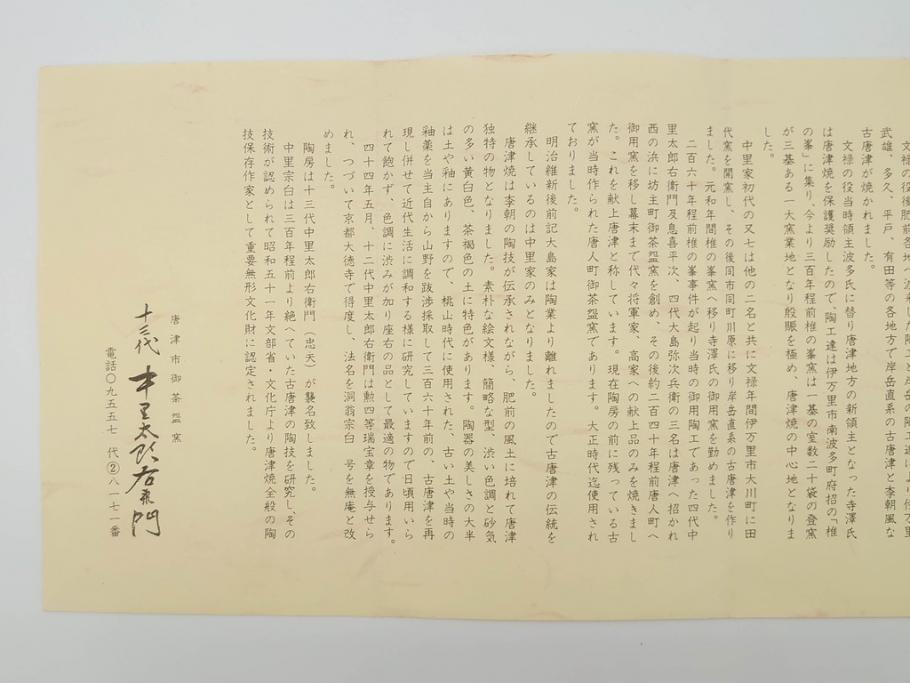 文禄の役後肥前各地へ
武雄、多久、平戸、有田等の各地方で岸岳直系の古唐津と李朝風な
古唐津が焼かれました。
文禄の役当時領主波多氏に替り唐津地方の新領主となった寺澤氏
は唐津焼を保護奨励したので、陶工達は伊万里市南波多町府招の「椎
の峯」に集り、今より三百年程前椎の峯窯は一基の室数二十袋の登窯
が三基ある一大窯業地となり殷賑を極め、唐津焼の中心地となりま
した。
中里家初代の又七は他の二名と共に文禄年間伊万里市大川町に田
代窯を開窯し、その後同市同町川原に移り岸岳直系の古唐津を作り
ました。元和年間椎の峯へ移り寺澤氏の御用窯を勤めました。
二百六十年程前椎の峯事件が起り当時の御用陶工であった四代中
里太郎右衛門及息喜平次、四代大島弥次兵衛の三名は唐津へ招かれ
西の浜に坊主町御茶盌窯を創め、その後約二百四十年程前唐人町へ
御用窯を移し幕末まで代々将軍家、高家への献上品のみを焼きまし
た。これを献上唐津と称しています。現在陶房の前に残っている古
窯が当時作られた唐人町御茶盌窯であります。大正時代迄使用され
ておりました。
明治維新後前記大島家は陶業より離れましたので古唐津の伝統を
継承しているのは中里家のみとなりました。
唐津焼は李朝の陶技が伝承されながら、肥前の風土に培れて唐津
独特の物となりました。素朴な絵文様、簡略な型、渋い色調と砂気
の多い黄白色、茶褐色の土に特色があります。陶器の美しさの大半
は土や釉にありますので、桃山時代に使用された、古い土や当時の
釉薬を当主自から山野を跋渉採取して三百六十年前の、古唐津を再
現し併せて近代生活に調和する様に研究していますので日頃用いら
れて飽かず、色調に渋みが加り座右の品として最適の物であります。
四十四年五月、十二代中里太郎右衛門は勲四等瑞宝章を授与せら
れ、つづいて京都大徳寺で得度し、法名を洞翁宗白 号を無庵と改
めました。
陶房は十三代中里太郎右衛門（忠夫）が襲名致しました。
中里宗白は三百年程前より絶へていた古唐津の陶技を研究し、その
技術が認められて昭和五十一年文部省・文化庁より唐津焼全般の陶
技保存作家として重要無形文化財に認定されました。
唐津市御茶盌窯
十三代 中里太郎右衛門
電話〇九五五七 代②八一七一番